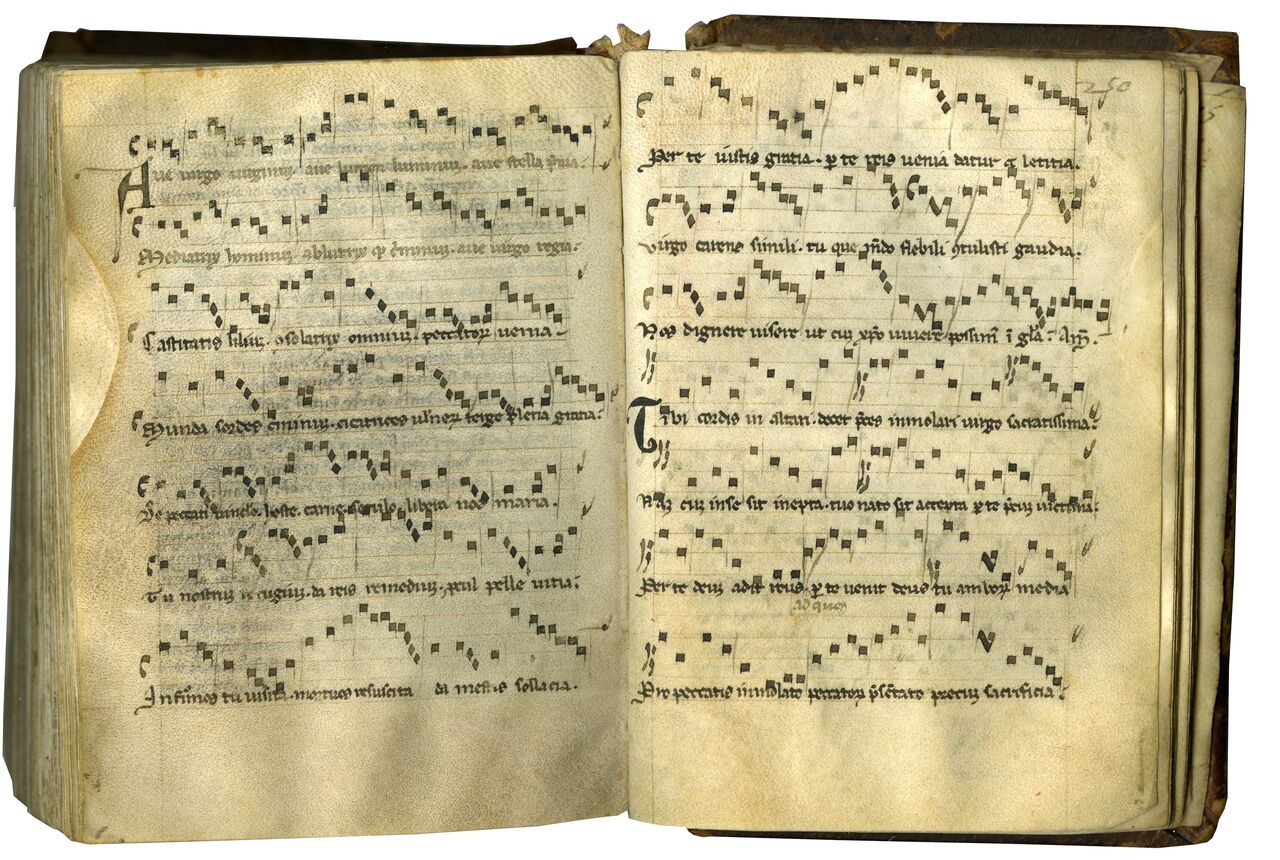 Aue uirgo uirginum. aue lumen luminum. aue stella p̃uia.
Mediatrix hominum. ablutrix q̃ c̃minum. aue uirgo regia.
Castitatis lilium. ɔsolatrix omnium. peccatoꝝ uenia.
Munda sordes c̃minum. cicatrices ulneꝝ terge plena gratia.
De peccati uinculo. hoste. carne. seculo. libera nos maria.
Tu nostrum refugium. da reis remedium. pcul pelle uitia.
Infirmos tu uisita. mortuos resuscita da mestis sollacia.
250
Per te iustis gratia. ꝑ te reis uenia datur & letitia.
Virgo carens simili. tu que mũdo flebili ɔtulisti gaudia.
Nos dignere uisere ut cum xp̃o uiuere possim᷒ ĩ gl̃a. Am̃.
Tibi cordis in altari. decet p̃ces inmolari uirgo sacratissima.
Nam cum in se sit inepta. tuo nato sit accepta ꝑ te p̃cum uictima.
Per te deum adit reus. ꝑ te uenit deus tu amboꝝ media
ad quem
Pro peccatis inmolato peccatoꝝ p̃sẽtato precum sacrificia.